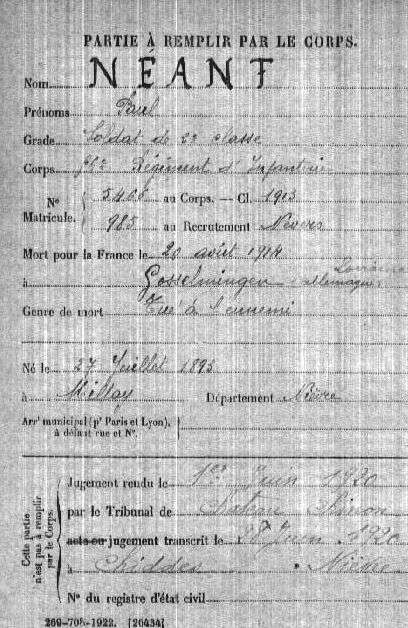 PARTIE À REMPLIR PAR LE CORPS.
Nom NÉANT
Prénoms
Grade Soldat de 2e classe
Corps Régiment d'Infanterie
N° Matricule. 5408 au Corps. — Cl. 1913
985 au Recrutement Nevers
Mort pour la France le 20 août 1914
à Gosselmingen (Lorraine allemagne)
Genre de mort Tué à l'ennemi
Né le 27 Juillet 1893
à Millay Département Nièvre
Arrt municipal (pr Paris et Lyon),
à défaut rue et N°.
Cette partie n'est pas à remplir par le Corps.
Jugement rendu le 1er Juin 1920
par le Tribunal de Chinon
acte ou jugement transcrit le 28 Juin 1920
à Chiddes Nièvre
N° du registre d'état civil
269-708-1922. [26434]